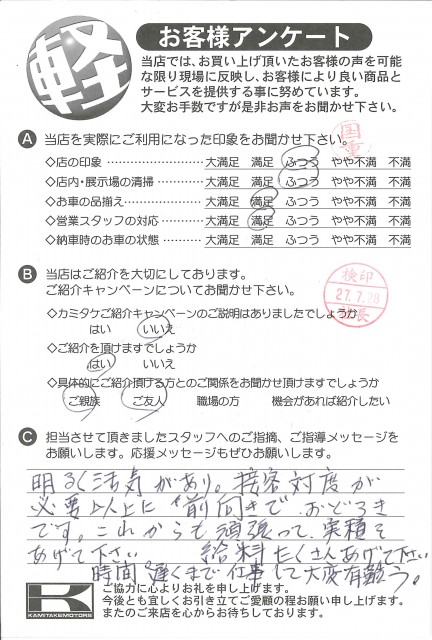 軽
お客様アンケート
当店では、お買い上げ頂いたお客様の声を可能
な限り現場に反映し、お客様により良い商品と
サービスを提供する事に努めています。
大変お手数ですが是非お声をお聞かせ下さい。
A 当店を実際にご利用になった印象をお聞かせ下さい。
国重
◇店の印象 ……………………… 大満足 満足 ふつう やや不満 不満
◇店内・展示場の清掃 ………… 大満足 満足 ふつう やや不満 不満
◇お車の品揃え ………………… 大満足 満足 ふつう やや不満 不満
◇営業スタッフの対応 ………… 大満足 満足 ふつう やや不満 不満
◇納車時のお車の状態 ………… 大満足 満足 ふつう やや不満 不満
B 当店はご紹介を大切にしてあります。
ご紹介キャンペーンについてお聞かせ下さい。
検印
27.7.28
◇カミタケご紹介キャンペーンのご説明はありましたでしょうか
はい いいえ
◇ご紹介を頂けますでしょうか
はい いいえ
◇具体的にご紹介頂ける方とのご関係をお聞かせ頂けますでしょうか
ご親族 ご友人 職場の方 機会があれば紹介したい
C 担当させて頂きましたスタッフへのご指摘、ご指導メッセージを
お願いします。応援メッセージもぜひお願いします。
明るく活気があり。接客対度が
必要以上に前向きで おどろき
です。これからも頑張って、実積を
あげて下さい。 給料たくさんあげて下さい
時間遅くまで仕事して大変有難う。
K
KAMITAKEMOTORS
ご協力に心よりお礼を申し上げます。
今後とも宜しくお引き立てご愛顧の程お願い申し上げます。
またのご来店を心からお待ちしております。